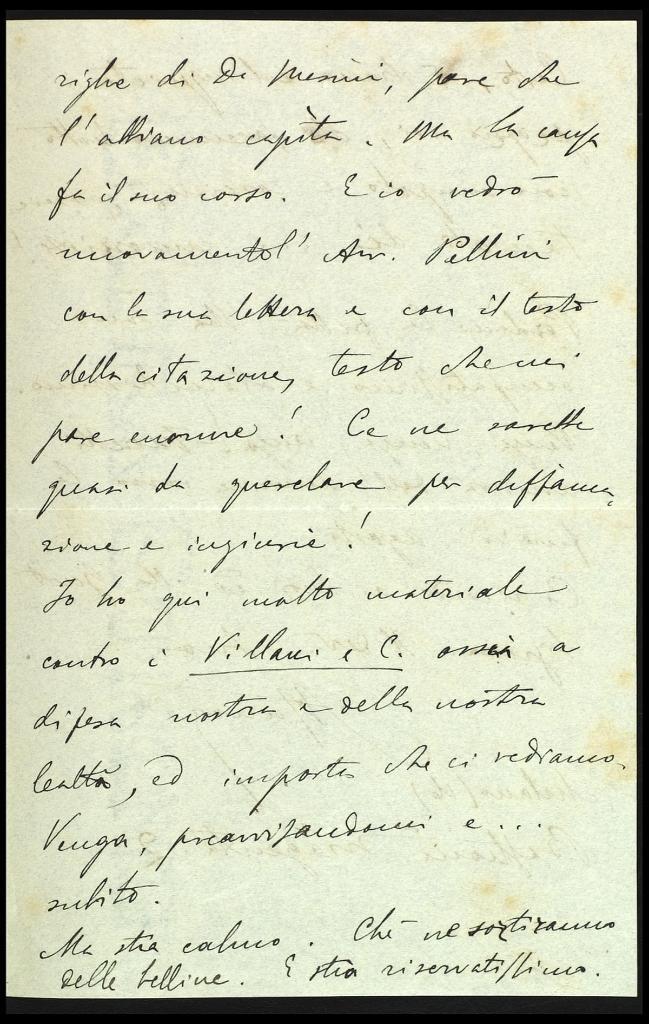 righe di De Mesini, pare che
l'abbiano capìta. Ma la causa
fa il suo corso. E io vedrò
nuovamente l'Avv. Pellini
con la sua lettera e con il testo
della citazione, testo che mi
pare enorme! Ce ne sarebbe
quasi da querelare per diffama-
zione e ingiurie!
Io ho qui molto materiale
contro i Villani e C. ossia a
difesa nostra e della nostra
lealtà, ed importa che ci vediamo.
Venga, preavvisandomi e ...
subito.
Ma stia calmo. Ché ne sortiranno
delle belline. E stia riservatissimo.